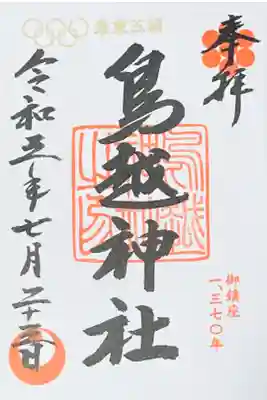 奉拝
鳥越神社
令和三年七月二十三日
御鎮座
一、三七〇年